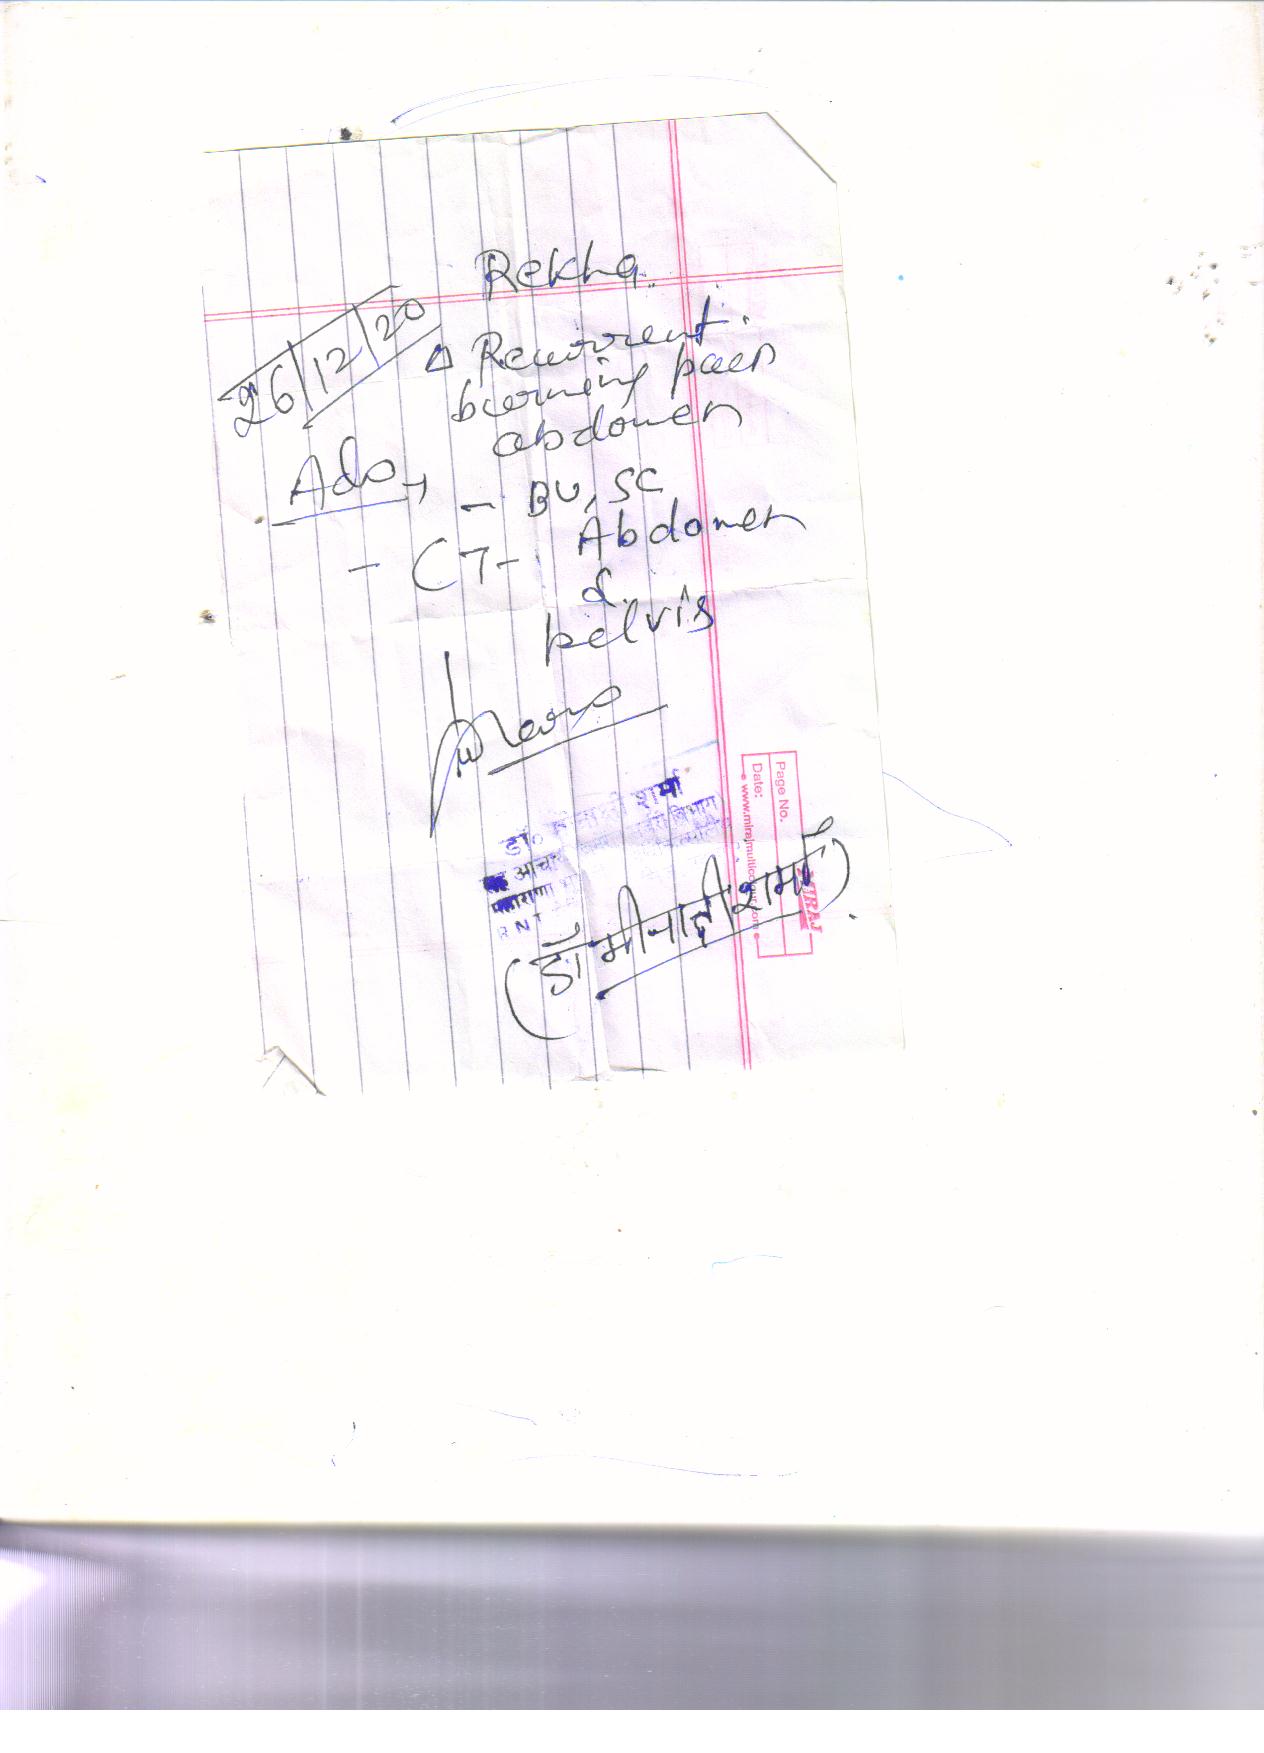 Rekha.
26/12/20
Δ Recurrent.
burning pain
abdomen
Adv →
- BU, SC
- CT- Abdomen
&
pelvis
डा० शर्मा
आचार्य
महाराणा
RNT
(डॉ मीनाक्षी शर्मा).
Page No.
Date:
www.mirajmulticolour.com
MIRAJ